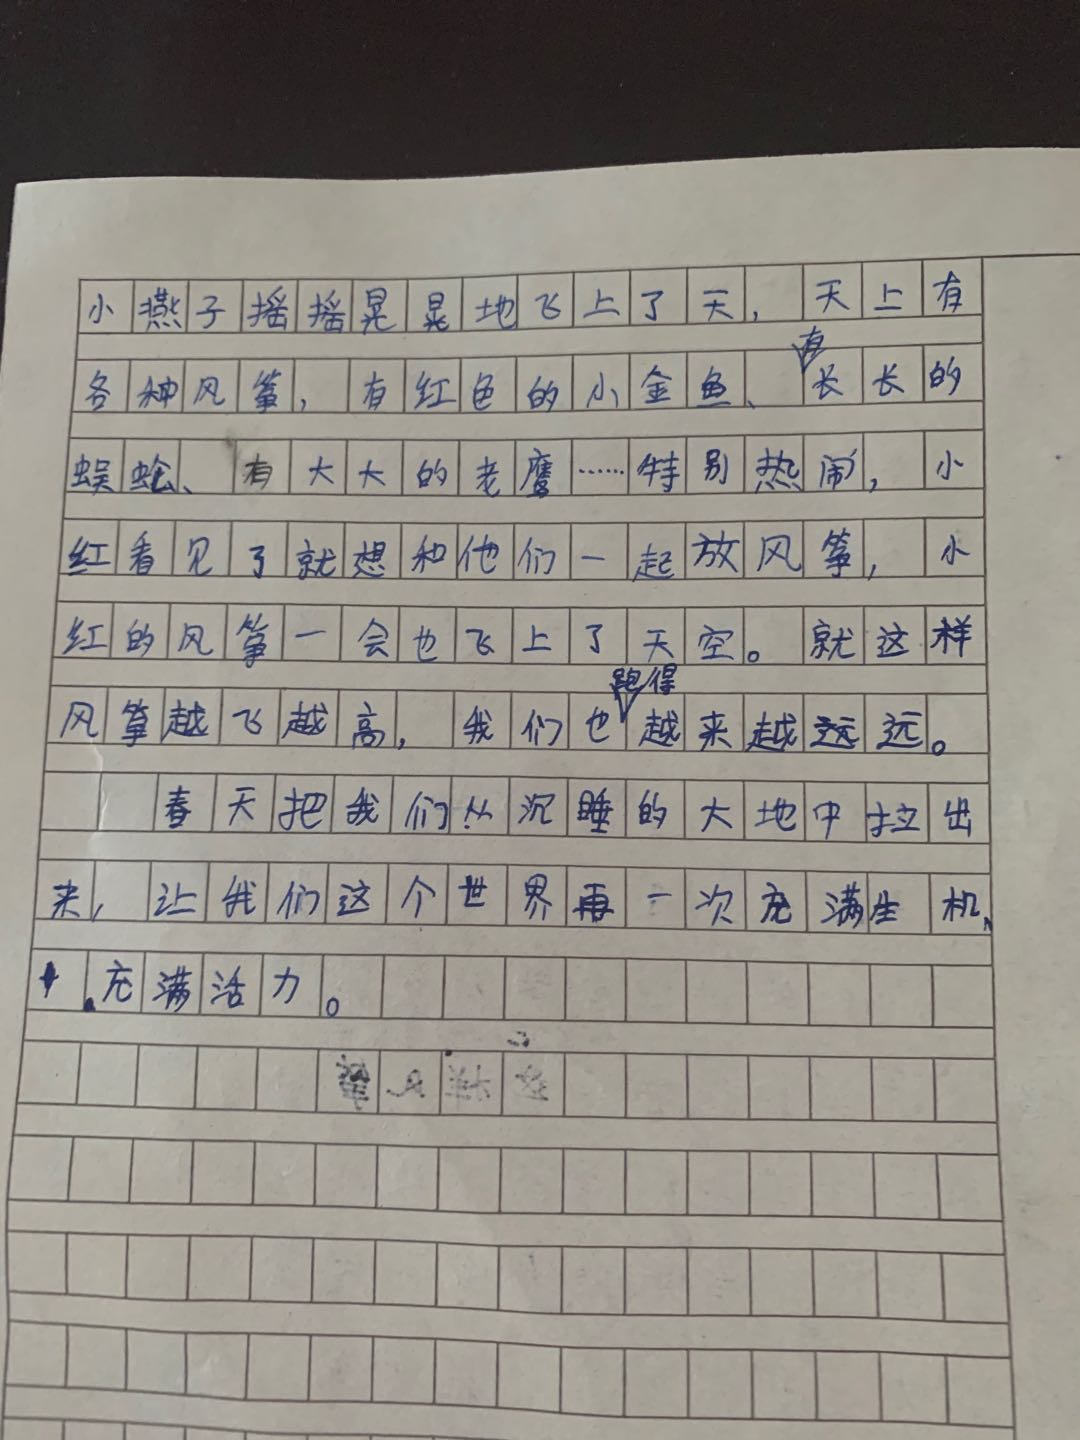 小燕子摇摇晃晃地飞上了天，天上有
各种风筝，有红色的小金鱼、有长长的
蜈蚣、有大大的老鹰……特别热闹，小
红看见了就想和他们一起放风筝，小
红的风筝一会也飞上了天空。就这样
风筝越飞越高，我们也跑得越来越远远。
春天把我们从沉睡的大地中拉出
来，让我们这个世界再一次充满生机、
充满活力。